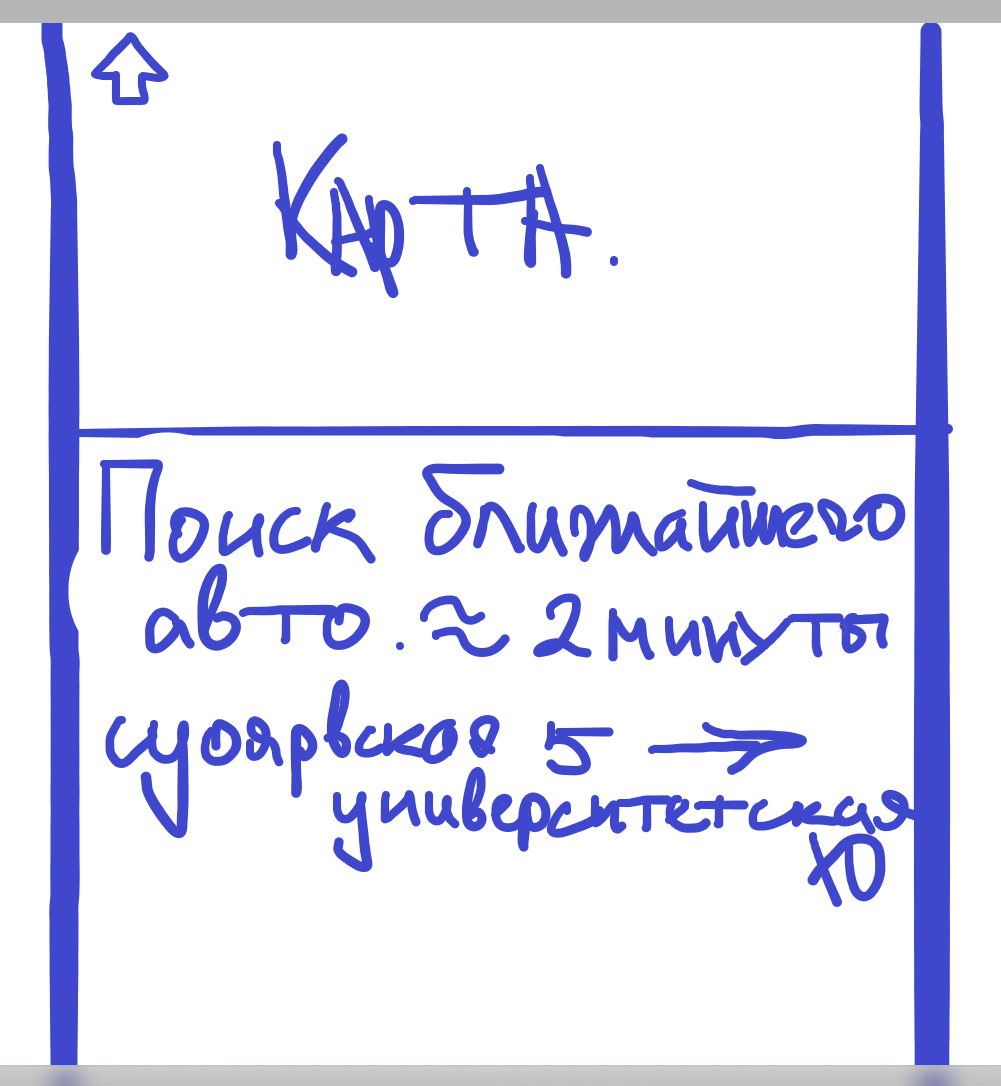 Карта.
Поиск ближайшего
авто. ≈ 2 минуты
суоярвская 5 →
университетская
10